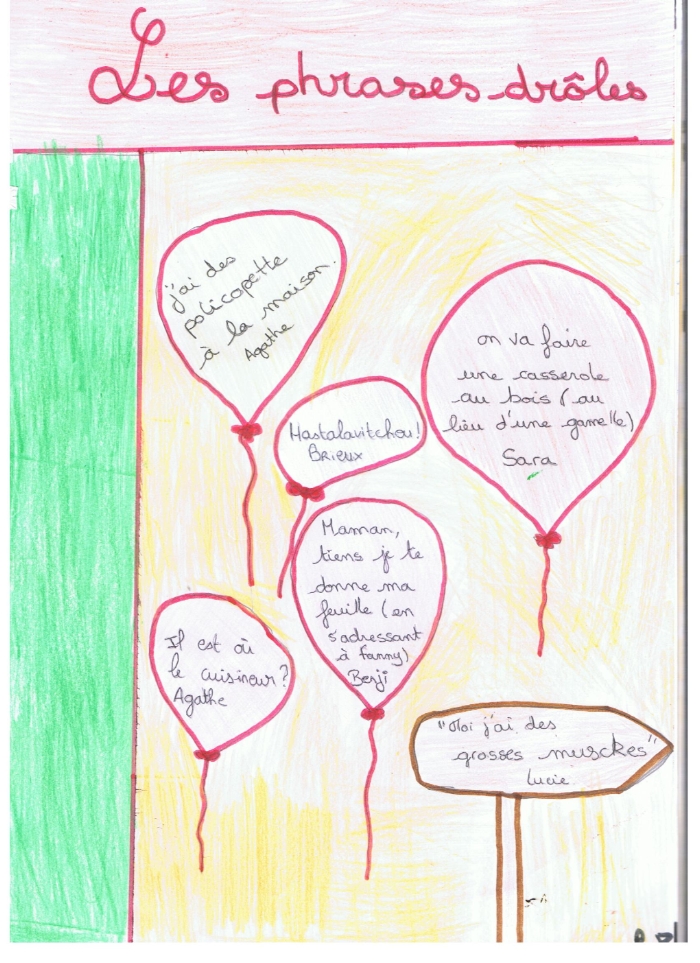 Les phrases drôles
j'ai des
policopette
à la maison.
Agathe
on va faire
une casserole
au bois (au
lieu d'une gamelle)
Sara
Hastalavitchou!
Brieux
Maman,
tiens je te
donne ma
feuille (en
s'adressant
à fanny)
Benji
Il est où
le cuisineur?
Agathe
"Moi j'ai des
grosses musckes"
Lucie